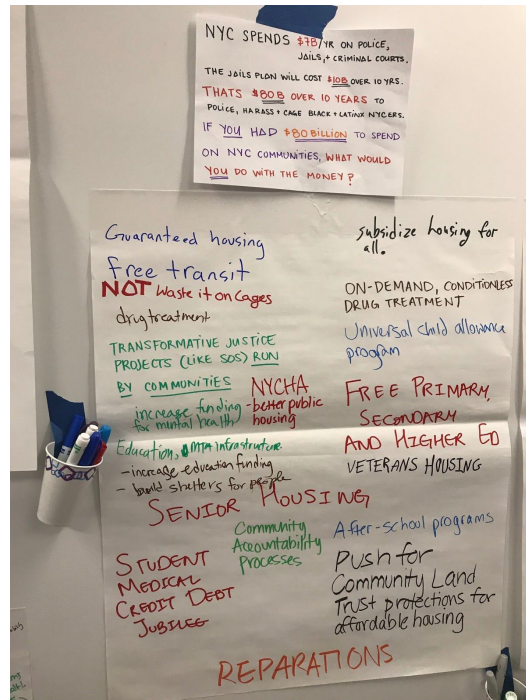 NYC SPENDS $7B/YR ON POLICE,
JAILS, + CRIMINAL COURTS.
THE JAILS PLAN WILL COST $10B OVER 10 YRS.
THATS $80B OVER 10 YEARS TO
POLICE, HARASS + CAGE BLACK + LATINX NYCERS.
IF YOU HAD $80 BILLION TO SPEND
ON NYC COMMUNITIES, WHAT WOULD
YOU DO WITH THE MONEY?
Guaranteed housing
free transit
NOT Waste it on Cages
drug treatment
TRANSFORMATIVE JUSTICE
PROJECTS (LIKE SOS) RUN
BY COMMUNITIES
increase funding
for mental health
NYCHA
-better public
housing
Education, MTA infrastructure
- increase education funding
- build shelters for people
SENIOR HOUSING
Community
Accountability
Processes
STUDENT
MEDICAL
CREDIT DEBT
JUBILEE
subsidize housing for
all.
ON-DEMAND, CONDITIONLESS
DRUG TREATMENT
Universal child allowance
program
FREE PRIMARY,
SECONDARY
AND HIGHER ED
VETERANS HOUSING
After-school programs
Push for
Community Land
Trust protections for
affordable housing
REPARATIONS